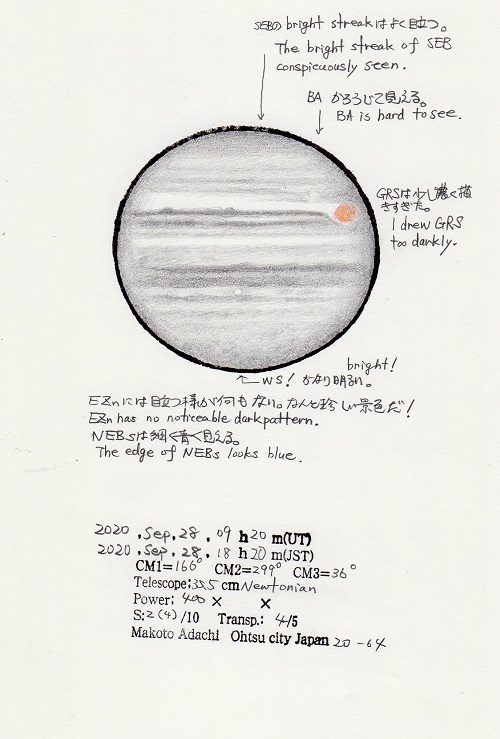 SEBのbright streakはよく目立つ。
The bright streak of SEB
conspicuously seen.
BA かろうじて見える。
BA is hard to see.
GRSは少し濃く描
きすぎた。
I drew GRS
too darkly.
bright!
WS! かなり明るい。
EZnには目立つ様が何もない。なんと珍しい景色だ!
EZn has no noticeable dark pattern.
NEBsは細く青く見える。
The edge of NEBs looks blue.
2020 .Sep.28 . 09 h 20 m(UT)
2020 .Sep.28 . 18 h 20 m(JST)
CM1=166° CM2=299° CM3=36°
Telescope:35.5 cm Newtonian
Power: 400 × ×
S:2(4)/10 Transp.: 4/5
Makoto Adachi Ohtsu city Japan 20-64